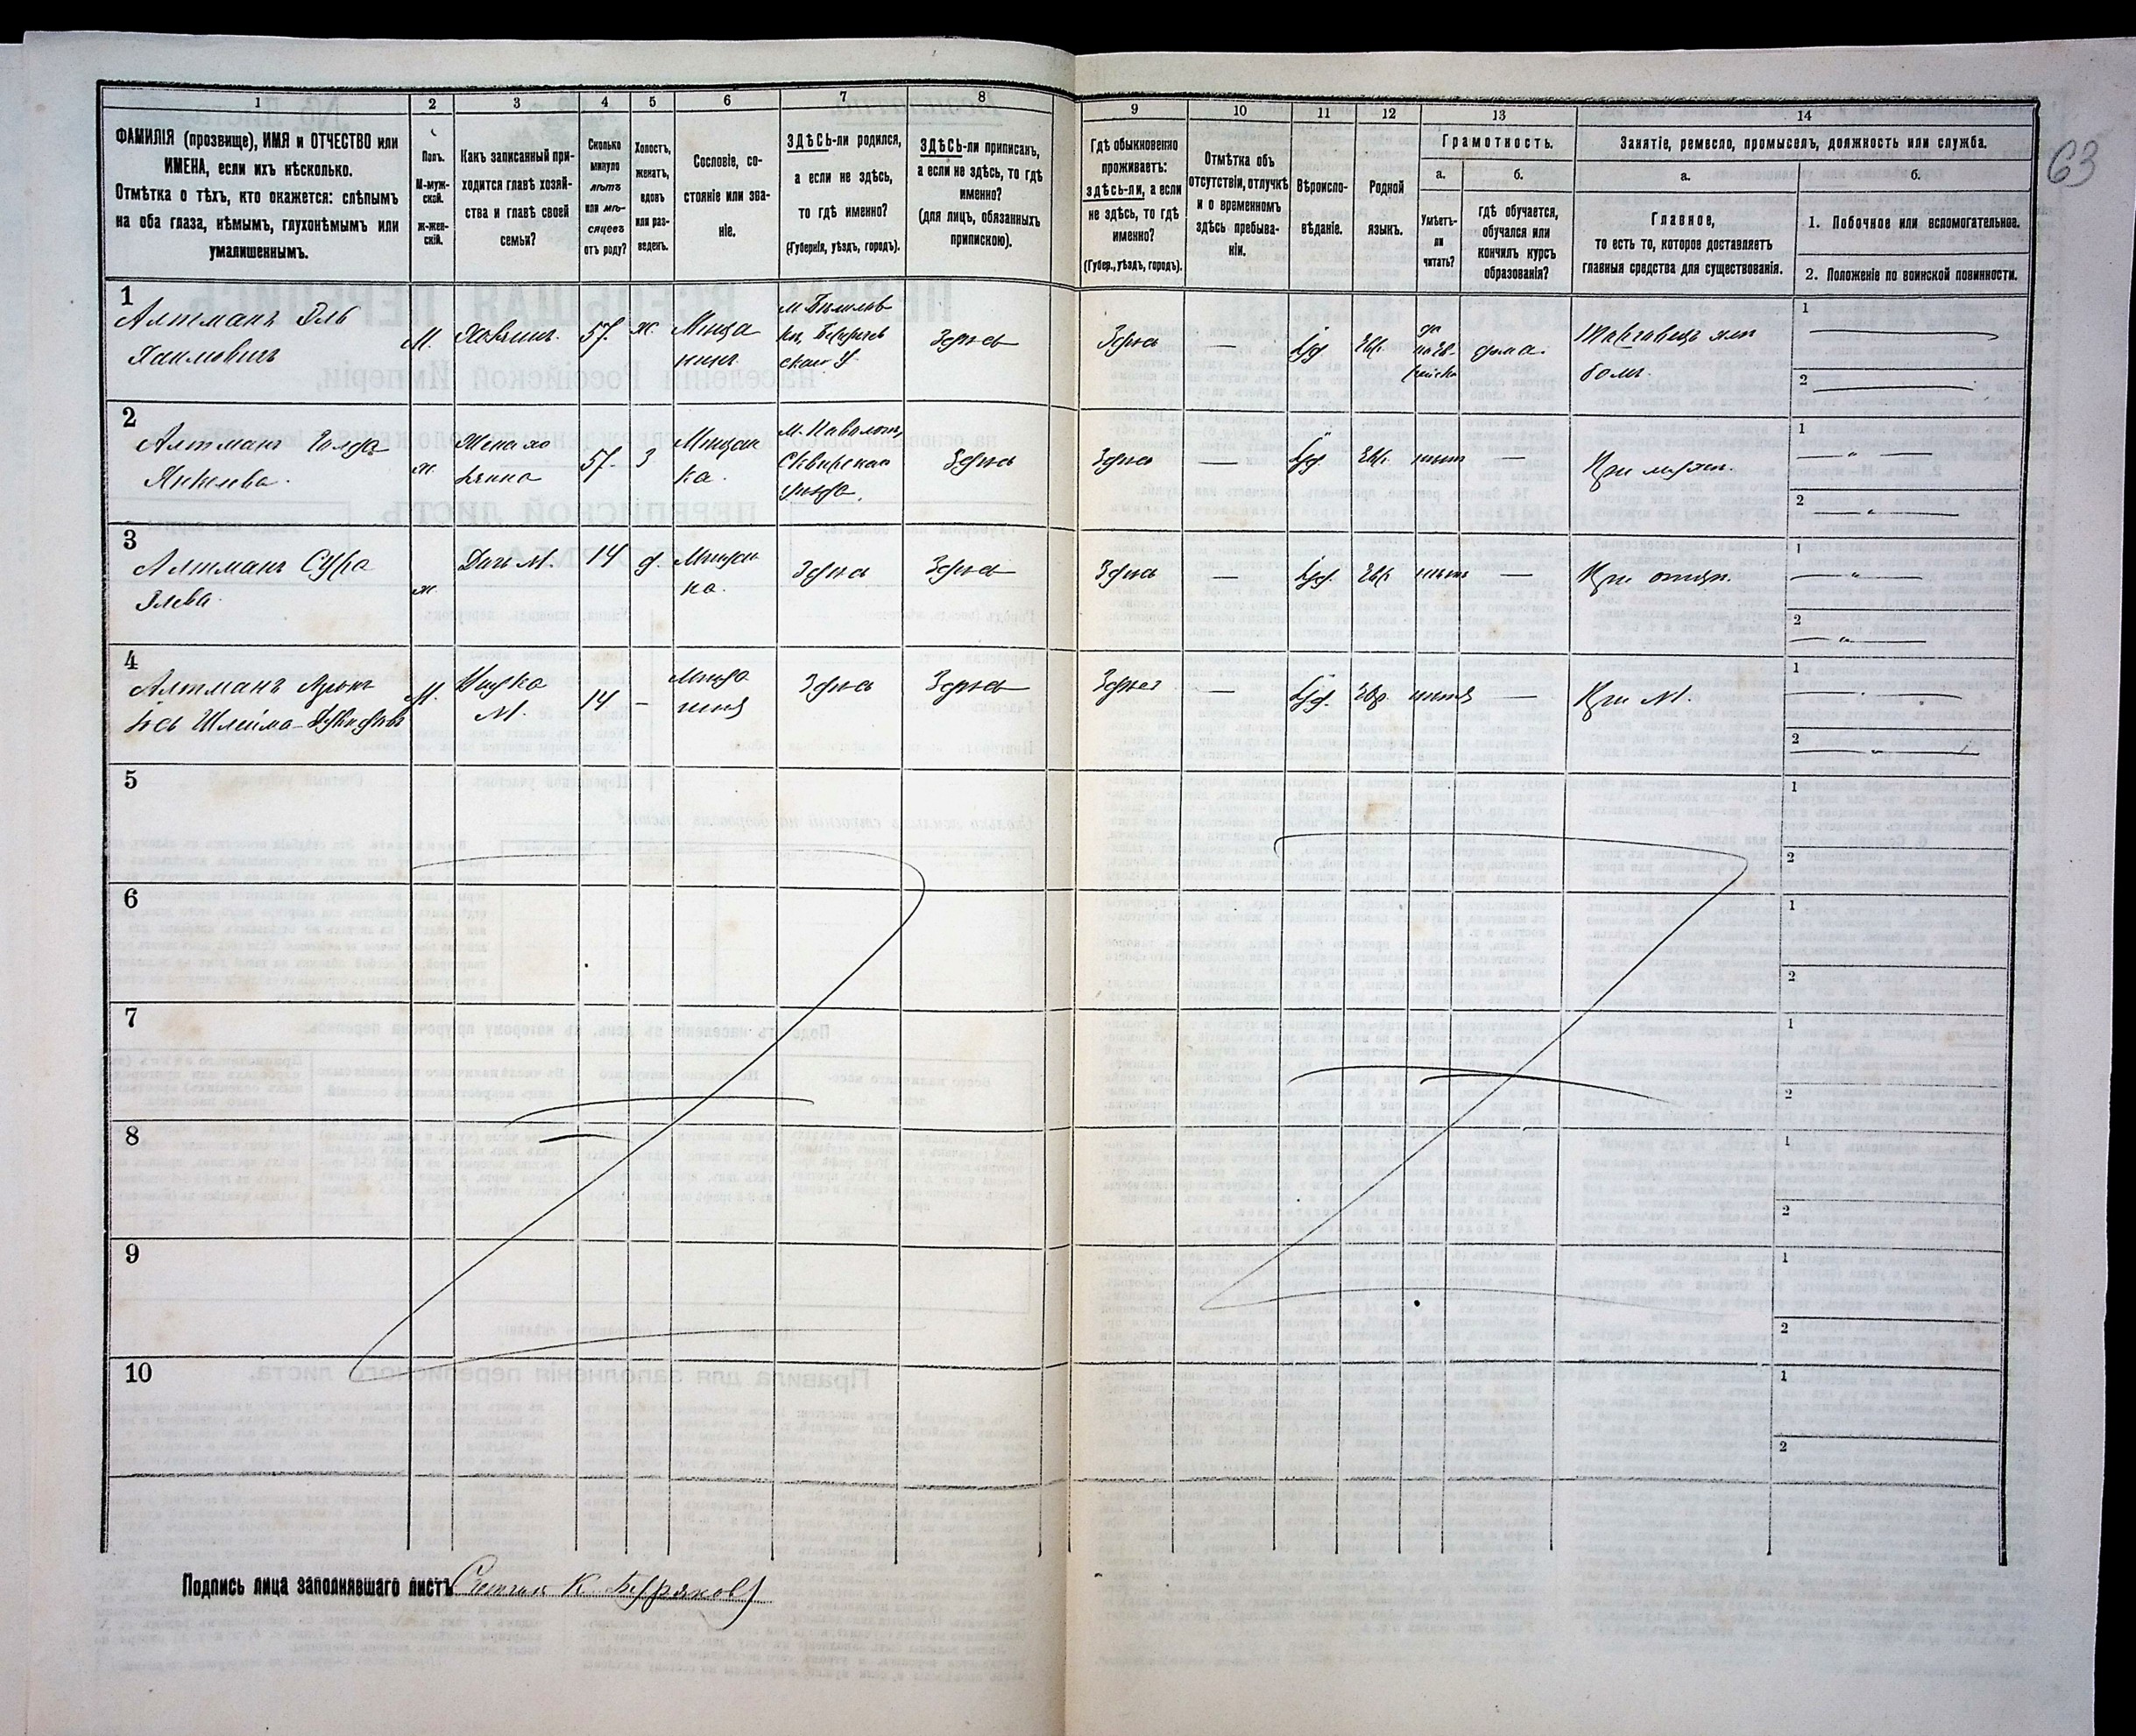 1 2 3 4 5 6 7 8 9 10 11 12 13 14
63
ФАМИЛІЯ (прозвище), ИМЯ и ОТЧЕСТВО или
ИМЕНА, если ихъ нѣсколько.
Отмѣтка о тѣхъ, кто окажется: слѣпымъ
на оба глаза, нѣмымъ, глухонѣмымъ или
умалишеннымъ.
Полъ.
М-муж-
ской.
ж-жен-
скій.
Какъ записанный при-
ходится главѣ хозяй-
ства и главѣ своей
семьи?
Сколько
минуло
лѣтъ
или мѣ-
сяцевъ
отъ роду?
Холостъ,
женатъ,
вдовъ
или раз-
веденъ.
Сословіе, со-
стояніе или зва-
ніе.
ЗДѢСЬ-ли родился,
а если не здѣсь,
то гдѣ именно?
(Губернія, уѣздъ, городъ).
ЗДѢСЬ-ли приписанъ,
а если не здѣсь, то гдѣ
именно?
(для лицъ, обязанныхъ
припискою).
Гдѣ обыкновенно
проживаетъ:
здѣсь-ли, а если
не здѣсь, то гдѣ
именно?
(Губер., уѣздъ, городъ).
Отмѣтка объ
отсутствіи, отлучкѣ
и о временномъ
здѣсь пребыва-
ніи.
Вѣроиспо-
вѣданіе.
Родной
языкъ.
Грамотность.
а.
Умѣетъ-
ли
читать?
б.
гдѣ обучается,
обучался или
кончилъ курсъ
образованія?
Занятіе, ремесло, промыселъ, должность или служба.
а.
Главное,
то есть то, которое доставляетъ
главныя средства для существованія.
б.
1. Побочное или вспомогательное.
2. Положеніе по воинской повинности.
1
Алтманъ Эль
Хаимовичъ
М.
Хозяинъ.
57.
ж.
Мѣща
нинъ
Здѣсь
Здѣсь
—
Іуд.
Евр.
да
по Ев-
рейски
дома.
Торговецъ хлѣ
бомъ.
1
2
2
Алтманъ Голда
Янкелева.
ж.
Жена хо
зяина
57.
З
Мѣщан
ка.
м. Паволочь
Сквирскаго
уѣзда.
Здѣсь
Здѣсь
—
Іуд.
Евр.
нѣтъ
—
При мужѣ.
1
2
3
Алтманъ Сура
Элева.
ж.
Дочь М.
14
д.
Мѣщан
ка.
Здѣсь
Здѣсь
Здѣсь
—
Іуд.
Евр.
нѣтъ
—
При отцѣ.
1
2
4
Алтманъ
М.
М.
14
—
Мѣща
нинъ
Здѣсь
Здѣсь
Здѣсь
—
Іуд.
Евр.
нѣтъ
—
При М.
1
2
5
1
2
6
1
2
7
1
2
8
1
2
9
1
2
10
1
2
Подпись лица заполнявшаго листъ Счетчик К.